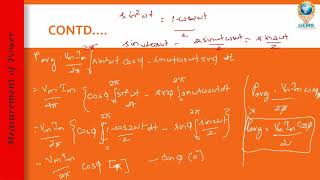 CONTD....
GEMS
Measurement of Power
sin²ωt = 1-cos2ωt / 2
sinωt cosωt = 2sinωt cosωt / 2 = sin2ωt / 2
Pavg = VmIm / 2π ∫ sin²ωt cosφ - sinωt cosωt sinφ dt
= VmIm / 2π { cosφ ∫ sin²ωt dt - sinφ ∫ sinωt cosωt dt
= VmIm / 2π { cosφ ∫ 1-cos2ωt / 2 dt - sinφ ∫ sin2ωt / 2
= VmIm / 2π cosφ [ ] - sinφ [0]
Pavg = VmIm cosφ / 2